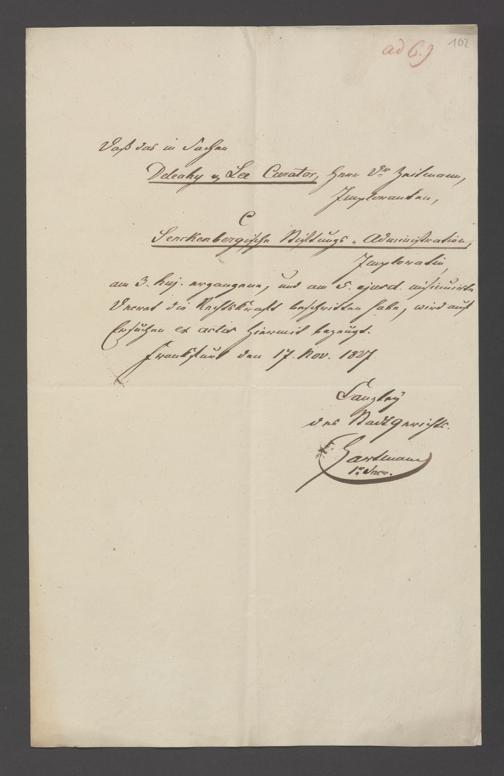 ad 6.)
102
Daß das in Sachen
Curator, Herrn Dr.
Imploranten,
C
Senckenbergische Stiftungs-Administration,
Imploratin
am 3. huj. ergangene, und am 5. ejusd. insinuirte
Decret die Rechtskraft beschritten habe, wird auf
Ersuchen ex actis hiermit bezeugt.
Frankfurt den 17. Nov. 1827
Canzley
des Stadtgerichts.
Hartmann